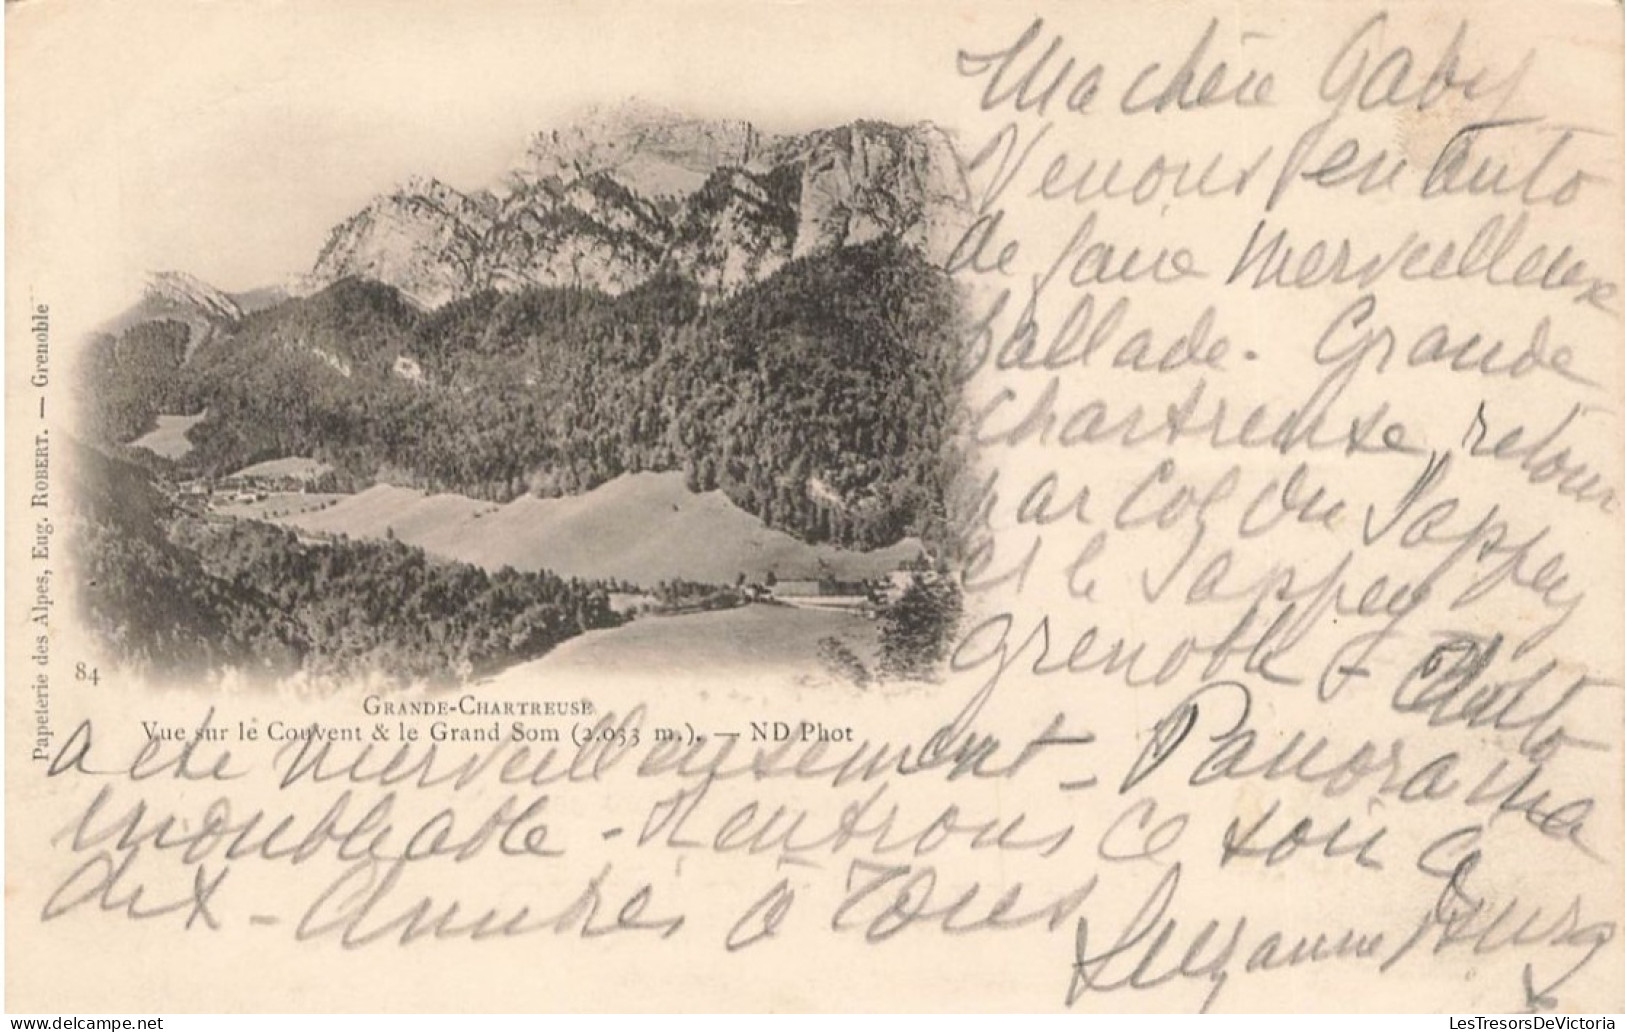 Ma chère Gaby
Venons en auto
de faire merveilleux
ballade - Grande
Chartreuse, retour
par Col du Sappey
et le Sappey
Grenoble - L'auto
a été merveilleusement - Panorama
inoubliable - Rentrons ce soir à
dix - Amitiés à tous
Suzanne Burg
84
GRANDE-CHARTREUSE
Vue sur le Couvent & le Grand Som (2.033 m.). — ND Phot
Papeterie des Alpes, Eug. ROBERT. — Grenoble
LesTresorsDeVictoria